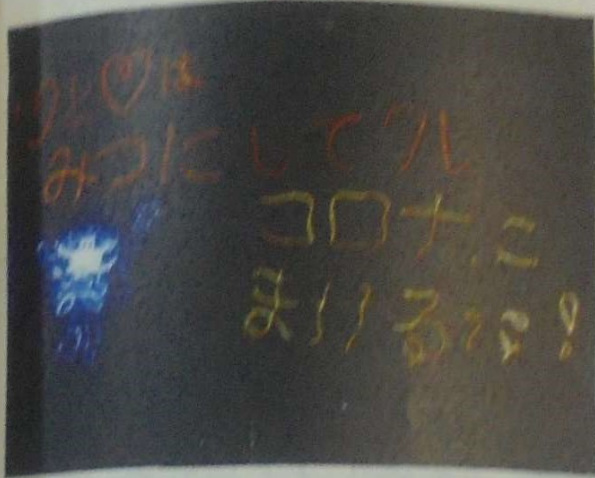 ♡は
みつにして
コロナに
まけるな!